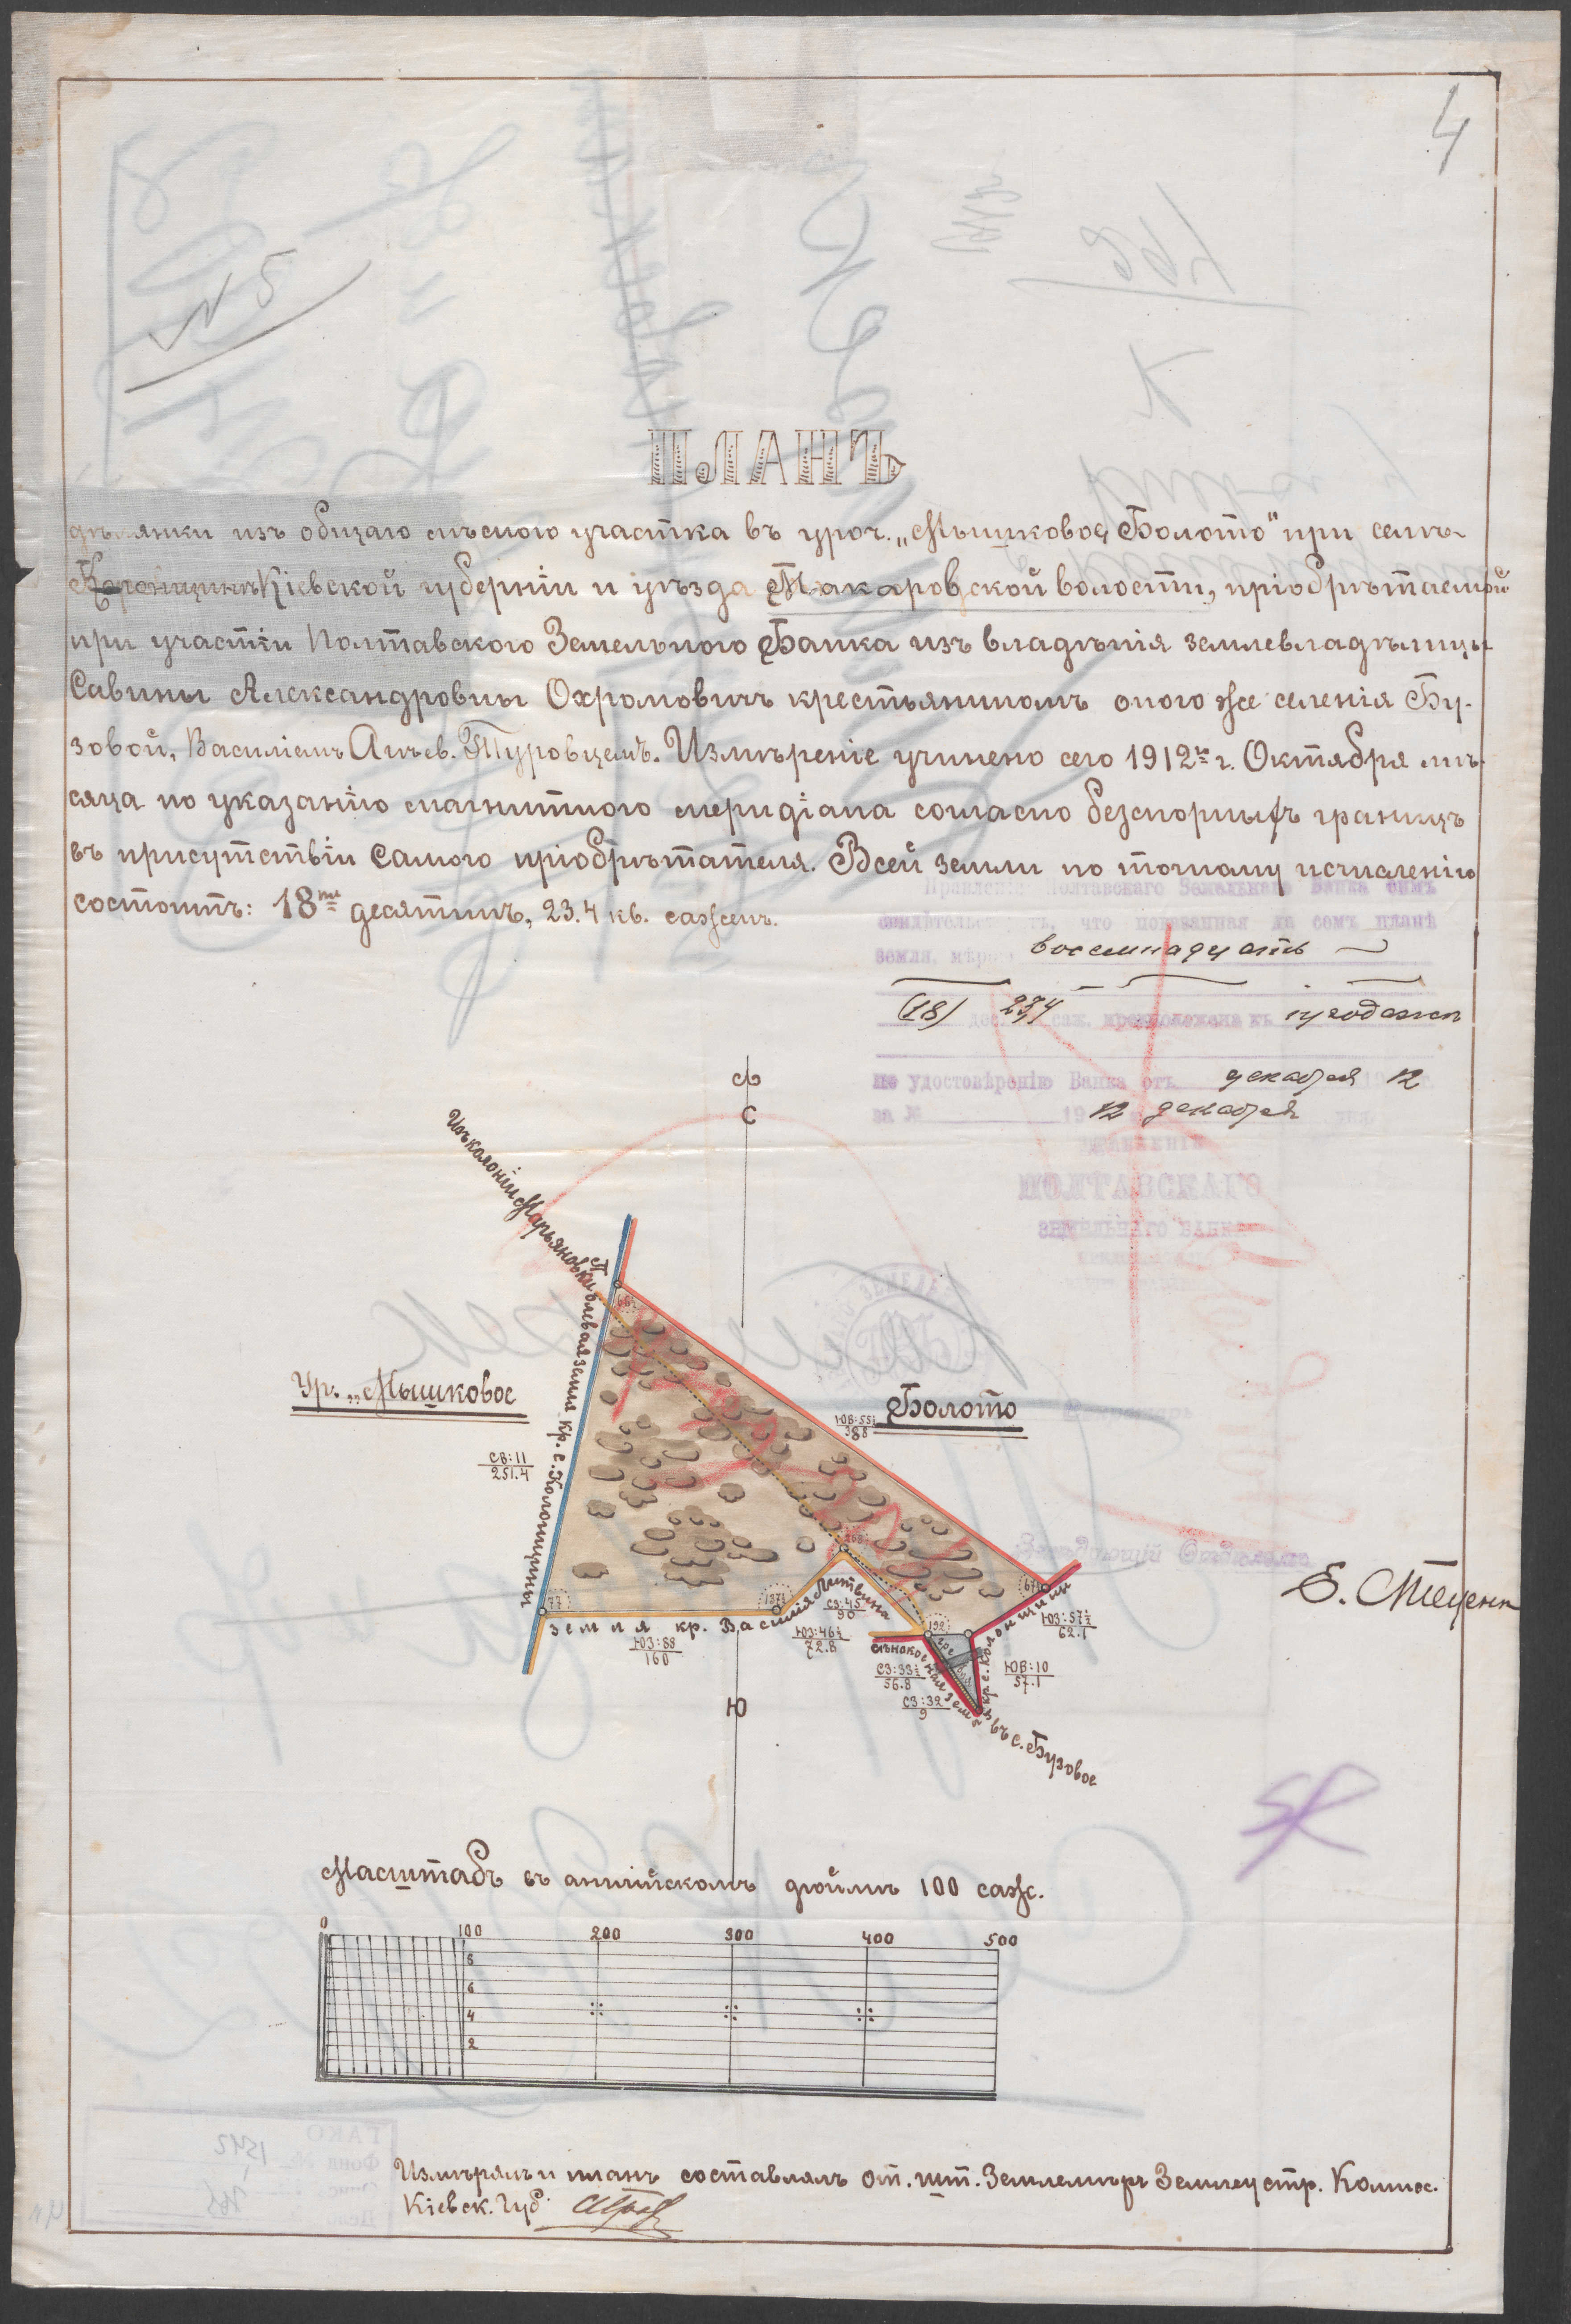 4
№ 5
ПЛАНЪ
дѣлянки изъ общаго лѣсного участка въ уроч. „Мышковое Болото" при селѣ
Колонщинѣ Кіевской губерніи и уѣзда Макаровской волости, пріобрѣтаемой
при участіи Полтавского Земельного Банка изъ владѣнія землевладѣлицы
Савины Александровны Охромовичъ крестьяниномъ оного же селенія Бу-
зовой, Василіемъ Туровцемъ. Измѣреніе учинено сего 1912го г. Октября мѣ-
сяца по указанію магнитного меридіана согласно безспорныхъ границъ
въ присутствіи самого пріобрѣтателя. Всей земли по точному исчисленію
состоитъ: 18ть десятинъ, 23.4 кв. сажень.
Правленіе Полтавскаго Земельнаго Банка симъ
свидѣтельствуетъ, что показанная на семъ планѣ
земля, мѣрою восемнадцать
(18) дес. 23,4 саж. предположена къ продажѣ
по удостовѣренію Банка отъ декабря 12
за № 19 12 декабря
ПРАВЛЕНІЕ
ПОЛТАВСКАГО
ЗЕМЕЛЬНАГО БАНКА
С
Изъ колоніи Марьяновки
полевая земля кр. с. Колонщины
Ур. „Мышковое
Болото
ЮВ:55½
388
СВ:11
251.4
66½
77
137½
268
192
67½
земля кр. Василія Литвина
ЮЗ:88
160
ЮЗ:46½
72.8
СЗ:45
90
ЮЗ:57½
62.1
сѣнокосная земля кр. с. Колонщины
СЗ:33½
56.8
ЮВ:10
57.1
СЗ:32
9
въ с. Бузовое
Ю
Завѣдующій Отдѣломъ
Масштабъ въ англійскомъ дюймѣ 100 саж.
0 100 200 300 400 500
8
6
4
2
Измѣрялъ и планъ составлялъ от. шт. Землемѣръ Землеустр. Комис.
Кіевск. Губ.